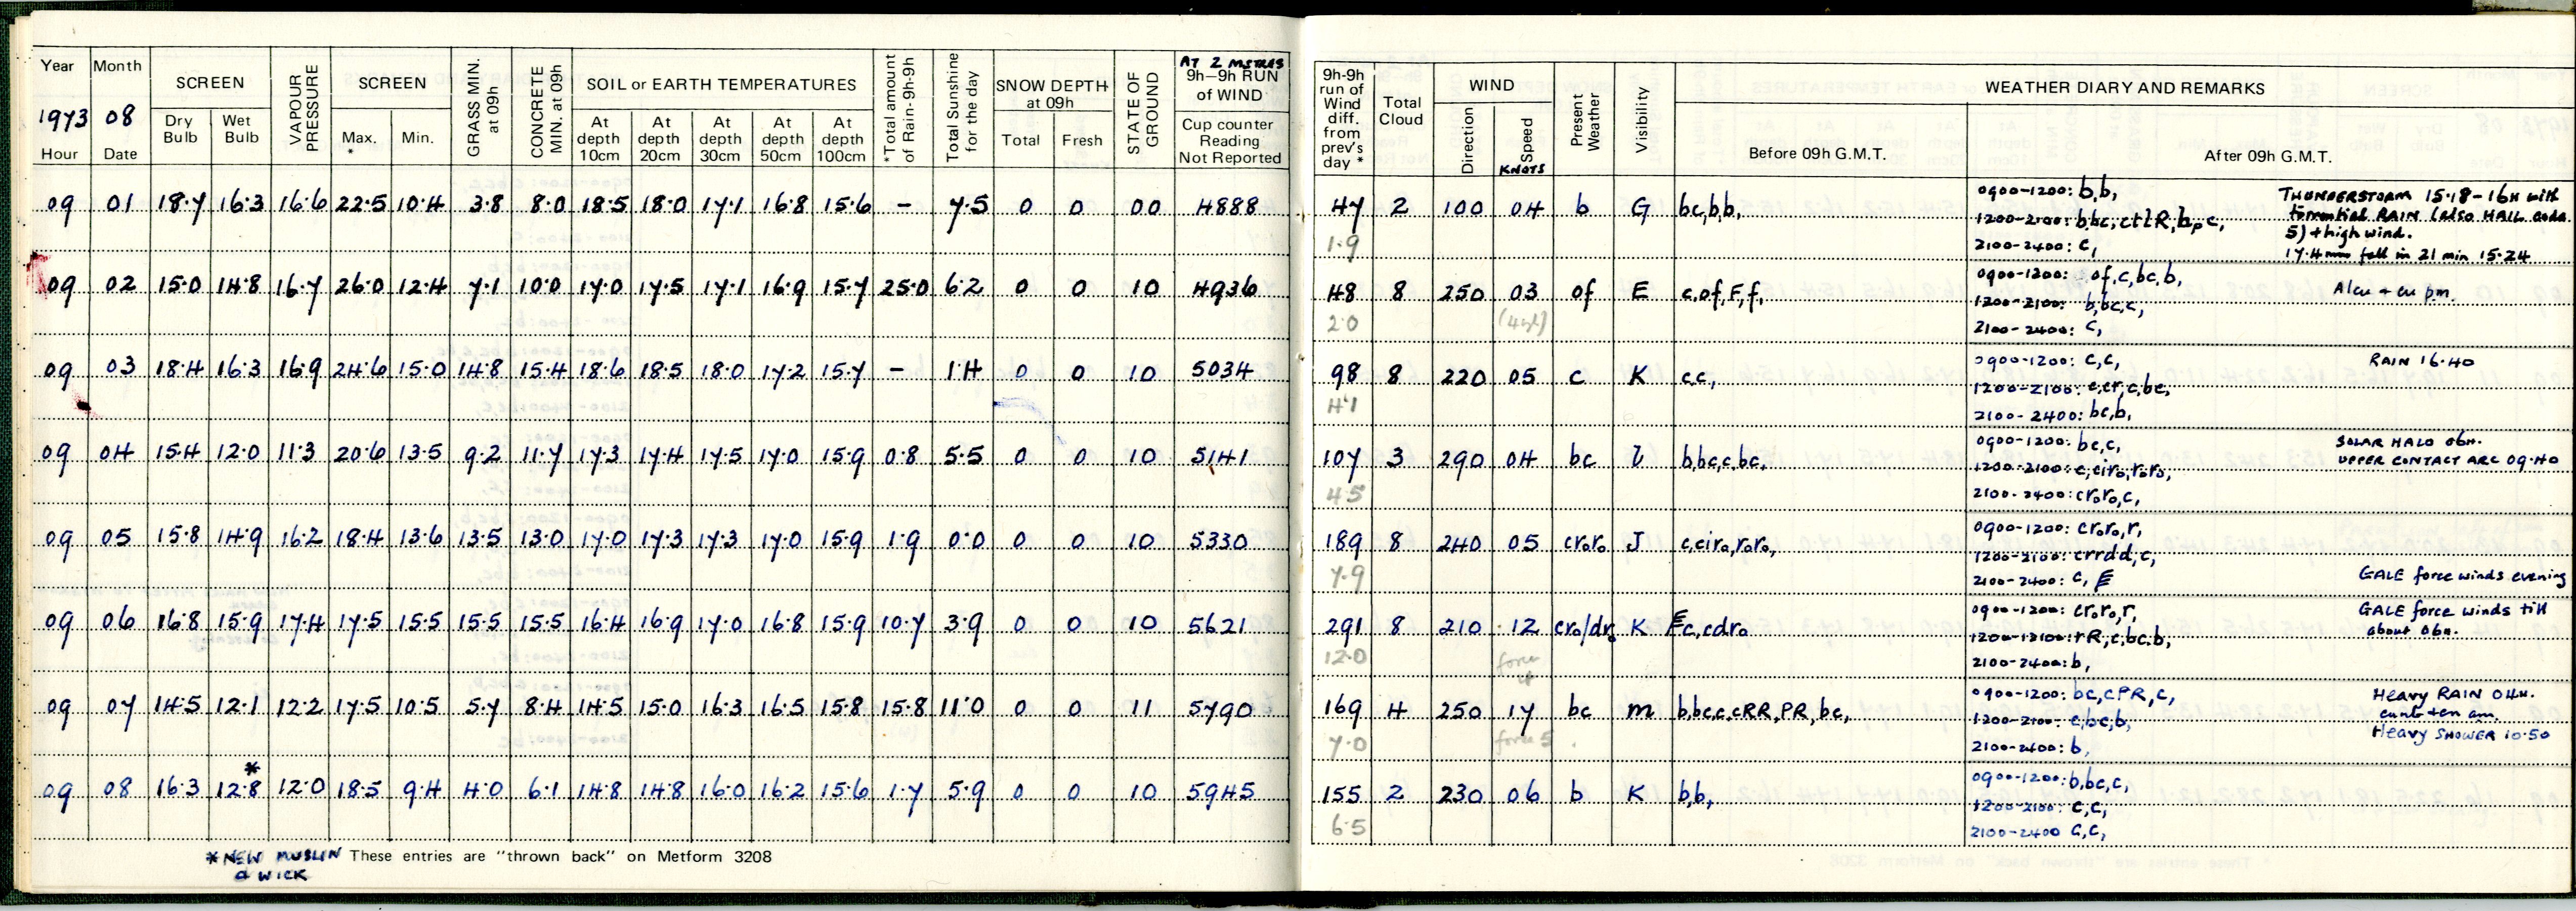 Year Month SCREEN VAPOUR PRESSURE SCREEN GRASS MIN. at 09h CONCRETE MIN. at 09h SOIL or EARTH TEMPERATURES *Total amount of Rain-9h-9h Total Sunshine for the day SNOW DEPTH at 09h STATE OF GROUND AT 2 METRES 9h–9h RUN of WIND
1973 08 Dry Bulb Wet Bulb Max. * Min. At depth 10cm At depth 20cm At depth 30cm At depth 50cm At depth 100cm Total Fresh Cup counter Reading Not Reported
Hour Date
09 01 18.7 16.3 16.6 22.5 10.4 3.8 8.0 18.5 18.0 17.1 16.8 15.6 - 7.5 0 0 00 4888
09 02 15.0 14.8 16.7 26.0 12.4 7.1 10.0 17.0 17.5 17.1 16.9 15.7 25.0 6.2 0 0 10 4936
09 03 18.4 16.3 16.9 24.6 15.0 14.8 15.4 18.6 18.5 18.0 17.2 15.7 - 1.4 0 0 10 5034
09 04 15.4 12.0 11.3 20.6 13.5 9.2 11.7 17.3 17.4 17.5 17.0 15.9 0.8 5.5 0 0 10 5141
09 05 15.8 14.9 16.2 18.4 13.6 13.5 13.0 17.0 17.3 17.3 17.0 15.9 1.9 0.0 0 0 10 5330
09 06 16.8 15.9 17.4 17.5 15.5 15.5 15.5 16.4 16.9 17.0 16.8 15.9 10.7 3.9 0 0 10 5621
09 07 14.5 12.1 12.2 17.5 10.5 5.7 8.4 14.5 15.0 16.3 16.5 15.8 15.8 11.0 0 0 11 5790
*
09 08 16.3 12.8 12.0 18.5 9.4 4.0 6.1 14.8 14.8 16.0 16.2 15.6 1.7 5.9 0 0 10 5945
* NEW MUSLIN & WICK
These entries are "thrown back" on Metform 3208
9h-9h run of Wind diff. from prev's day * Total Cloud WIND Present Weather Visibility WEATHER DIARY AND REMARKS
Direction Speed KNOTS Before 09h G.M.T. After 09h G.M.T.
47 2 100 04 b G bc,b,b,
1.9
0900-1200: b,b,
1200-2100: b,bc,ctlR,bpc,
2100-2400: c,
THUNDERSTORM 15.18-16H with
torrential RAIN (also HAIL code
5) + high wind.
17.4mm fell in 21 min 15.24
48 8 250 03 of E c,of,F,f,
2.0
0900-1200: of,c,bc,b,
1200-2100: b,bc,c,
2100-2400: c,
Alcu + cu pm.
98 8 220 05 c K c,c,
4.1
0900-1200: c,c,
1200-2100: c,cr,c,bc,
2100-2400: bc,b,
RAIN 16.40
107 3 290 04 bc l b,bc,c,bc,
4.5
0900-1200: bc,c,
1200-2100: c,ciro,roro,
2100-2400: croro,c,
SOLAR HALO 06H.
UPPER CONTACT ARC 09.40
189 8 240 05 croro J c,ciro,roro,
7.9
0900-1200: croro,r,
1200-2100: crrdd,c,
2100-2400: c,
GALE force winds evening
291 8 210 12 cro/dro K c,cdro
12.0 force 4
0900-1200: croro,r,
rR,c,bc,b,
2100-2400: b,
GALE force winds till
about 06H.
169 4 250 17 bc m b,bc,c,cRR,PR,bc,
7.0 force 5
0900-1200: bc,cPR,c,
1200-2100: c,bc,b,
2100-2400: b,
Heavy RAIN 04H.
am.
Heavy SHOWER 10.50
155 2 230 06 b K b,b,
6.5
0900-1200: b,bc,c,
1200-2100: c,c,
2100-2400 c,c,